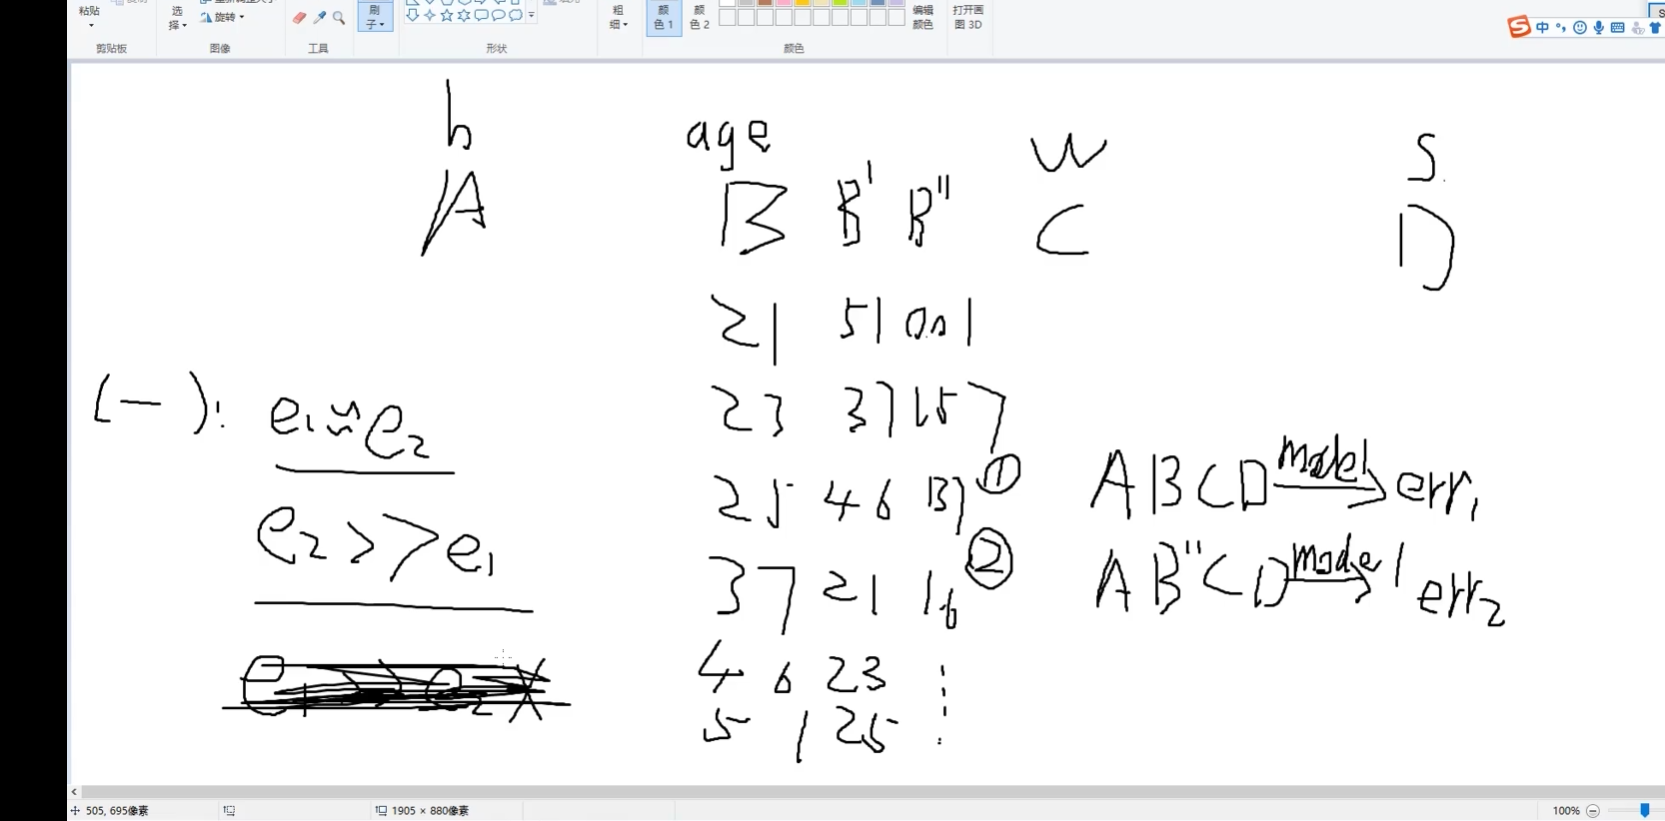 粘贴
选择
旋转
刷子
粗细
颜色 1
颜色 2
编辑颜色
打开画图 3D
剪贴板
图像
工具
形状
颜色
中
h
age
W
S
A
B B' B''
C
D
21 51 0.01
(一): e₁≈e₂
23 37 157
e₂>>e₁
25 46
① ABCD model err₁
② AB''CD model err₂
37 21 16
46 23
51 25
505, 695像素
1905 × 880像素
100%